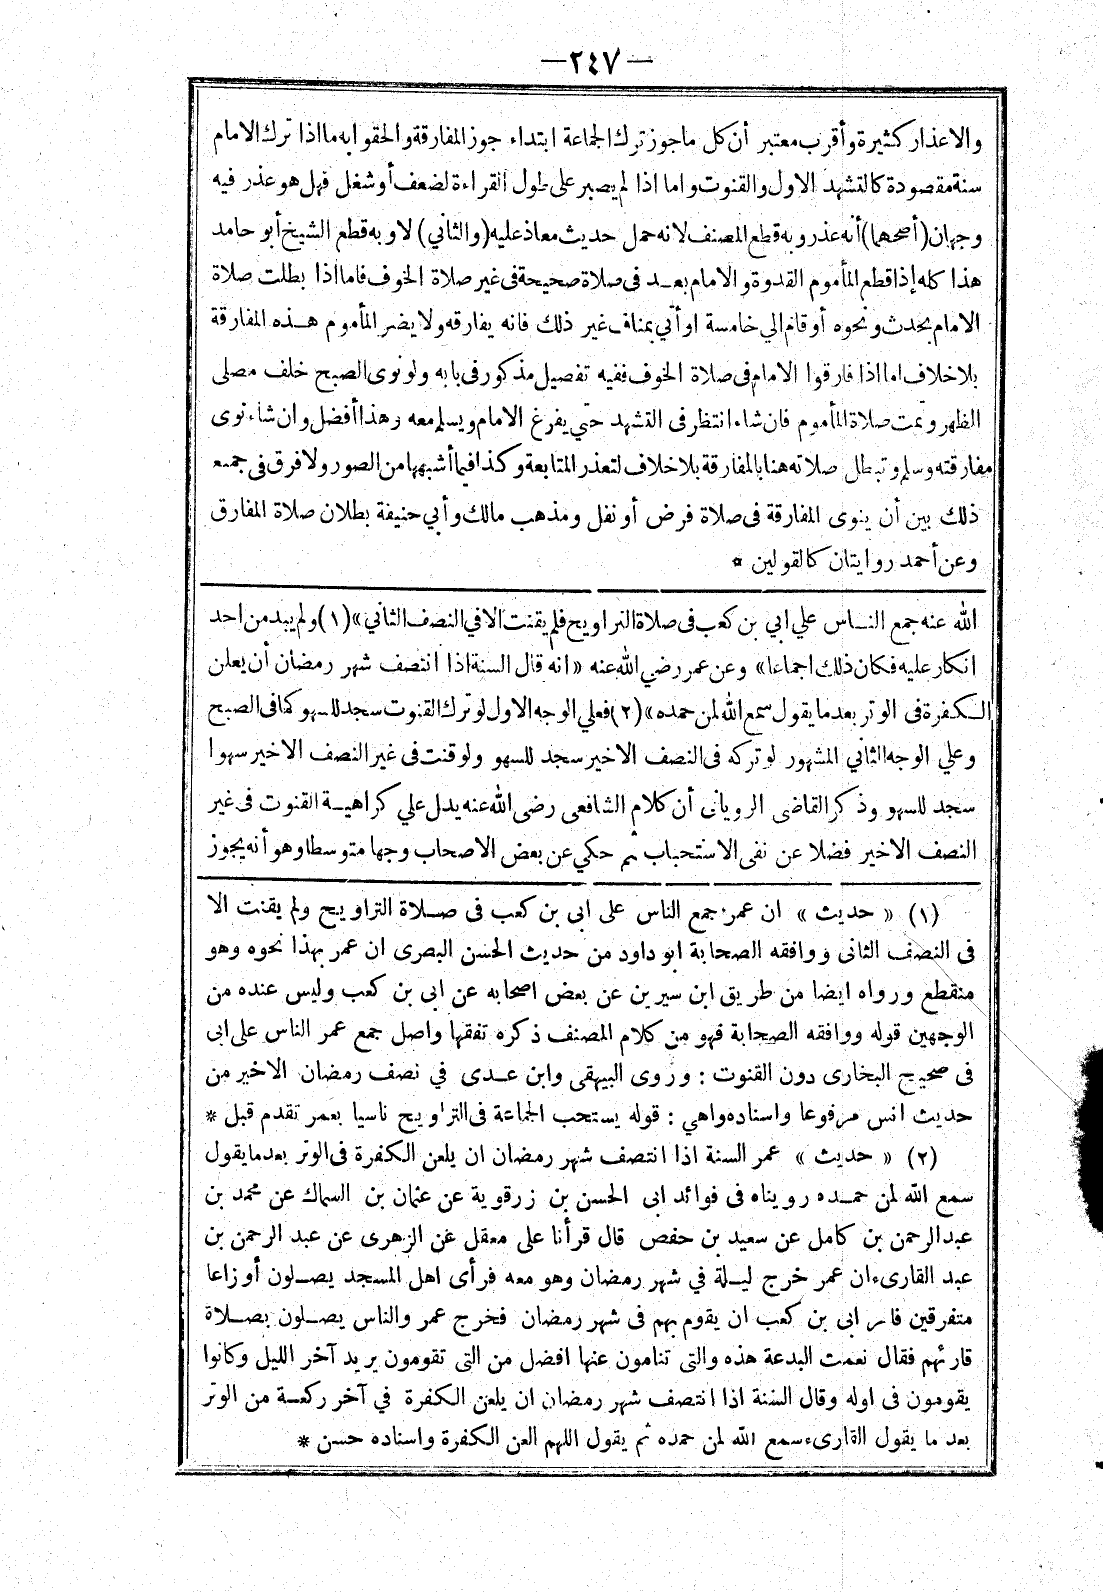 —٢٤٧—
والاعذار كثيرة وأقرب معتبر أن كل ما جوز ترك الجماعة ابتداء جوز المفارقة والحقوا به ما اذا ترك الامام
سنة مقصودة كالتشهد الاول والقنوت واما اذا لم يصبر على طول القراءة لضعف أو شغل فهل هو عذر فيه
وجهان (أصحهما) أنه عذر وبه قطع المصنف لانه حمل حديث معاذ عليه (والثاني) لا وبه قطع الشيخ أبو حامد
هذا كله إذا قطع المأموم القدوة والامام بعد فى صلاة صحيحة فى غير صلاة الخوف فاما اذا بطلت صلاة
الامام بحدث ونحوه أو قام الي خامسة او أتي بمناف غير ذلك فانه يفارقه ولا يضر المأموم هذه المفارقة
بلا خلاف اما اذا فارقوا الامام فى صلاة الخوف ففيه تفصيل مذكور فى بابه ولو نوى الصبح خلف مصلى
الظهر وتمت صلاة المأموم فان شاء انتظر فى التشهد حتي يفرغ الامام ويسلم معه وهذا أفضل وان شاء نوى
مفارقته وسلم وتبطل صلاته هنا بالمفارقة بلا خلاف لتعذر المتابعة وكذا فيما أشبهها من الصور ولا فرق فى جميع
ذلك بين أن ينوى المفارقة فى صلاة فرض أو نفل ومذهب مالك وأبي حنيفة بطلان صلاة المفارق
وعن أحمد روايتان كالقولين *
الله عنه جمع الناس علي ابي بن كعب فى صلاة التراويح فلم يقنت الا في النصف الثاني» (١) ولم يبد من احد
انكار عليه فكان ذلك اجماعا» وعن عمر رضي الله عنه «انه قال السنة اذا انتصف شهر رمضان أن يعلن
الكفرة فى الوتر بعد ما يقول سمع الله لمن حمده» (٢) فعلي الوجه الاول لو ترك القنوت سجد للسهو كما فى الصبح
وعلي الوجه الثاني المشهور لو تركه فى النصف الاخير سجد للسهو ولو قنت فى غير النصف الاخير سهوا
سجد للسهو وذكر القاضى الرويانى أن كلام الشافعى رضى الله عنه يدل علي كراهية القنوت فى غير
النصف الاخير فضلا عن نفى الاستحباب ثم حكي عن بعض الاصحاب وجها متوسطا وهو أنه يجوز
(١) « حديث » ان عمر جمع الناس على ابى بن كعب فى صلاة التراويح ولم يقنت الا
فى النصف الثانى ووافقه الصحابة ابو داود من حديث الحسن البصرى ان عمر بهذا نحوه وهو
منقطع ورواه ايضا من طريق ابن سيرين عن بعض اصحابه عن ابى بن كعب وليس عنده من
الوجهين قوله ووافقه الصحابة فهو من كلام المصنف ذكره تفقها واصل جمع عمر الناس على ابى
فى صحيح البخارى دون القنوت : وروى البيهقى وابن عدى في نصف رمضان الاخير من
حديث انس مرفوعا واسناده واهي : قوله يستحب الجماعة فى التراويح ناسيا بعمر تقدم قبل *
(٢) « حديث » عمر السنة اذا انتصف شهر رمضان ان يلعن الكفرة فى الوتر بعد ما يقول
سمع الله لمن حمده رويناه فى فوائد ابى الحسن بن زرقوية عن عثمان بن السماك عن محمد بن
عبد الرحمن بن كامل عن سعيد بن حفص قال قرأنا على معقل عن الزهرى عن عبد الرحمن بن
عبد القارىء ان عمر خرج ليلة في شهر رمضان وهو معه فرأى اهل المسجد يصلون أوزاعا
متفرقين فامر ابى بن كعب ان يقوم بهم فى شهر رمضان فخرج عمر والناس يصلون بصلاة
قارئهم فقال نعمت البدعة هذه والتى تنامون عنها افضل من التى تقومون يريد آخر الليل وكانوا
يقومون فى اوله وقال السنة اذا انتصف شهر رمضان ان يلعن الكفرة في آخر ركعة من الوتر
بعد ما يقول القارىء سمع الله لمن حمده ثم يقول اللهم العن الكفرة واسناده حسن *